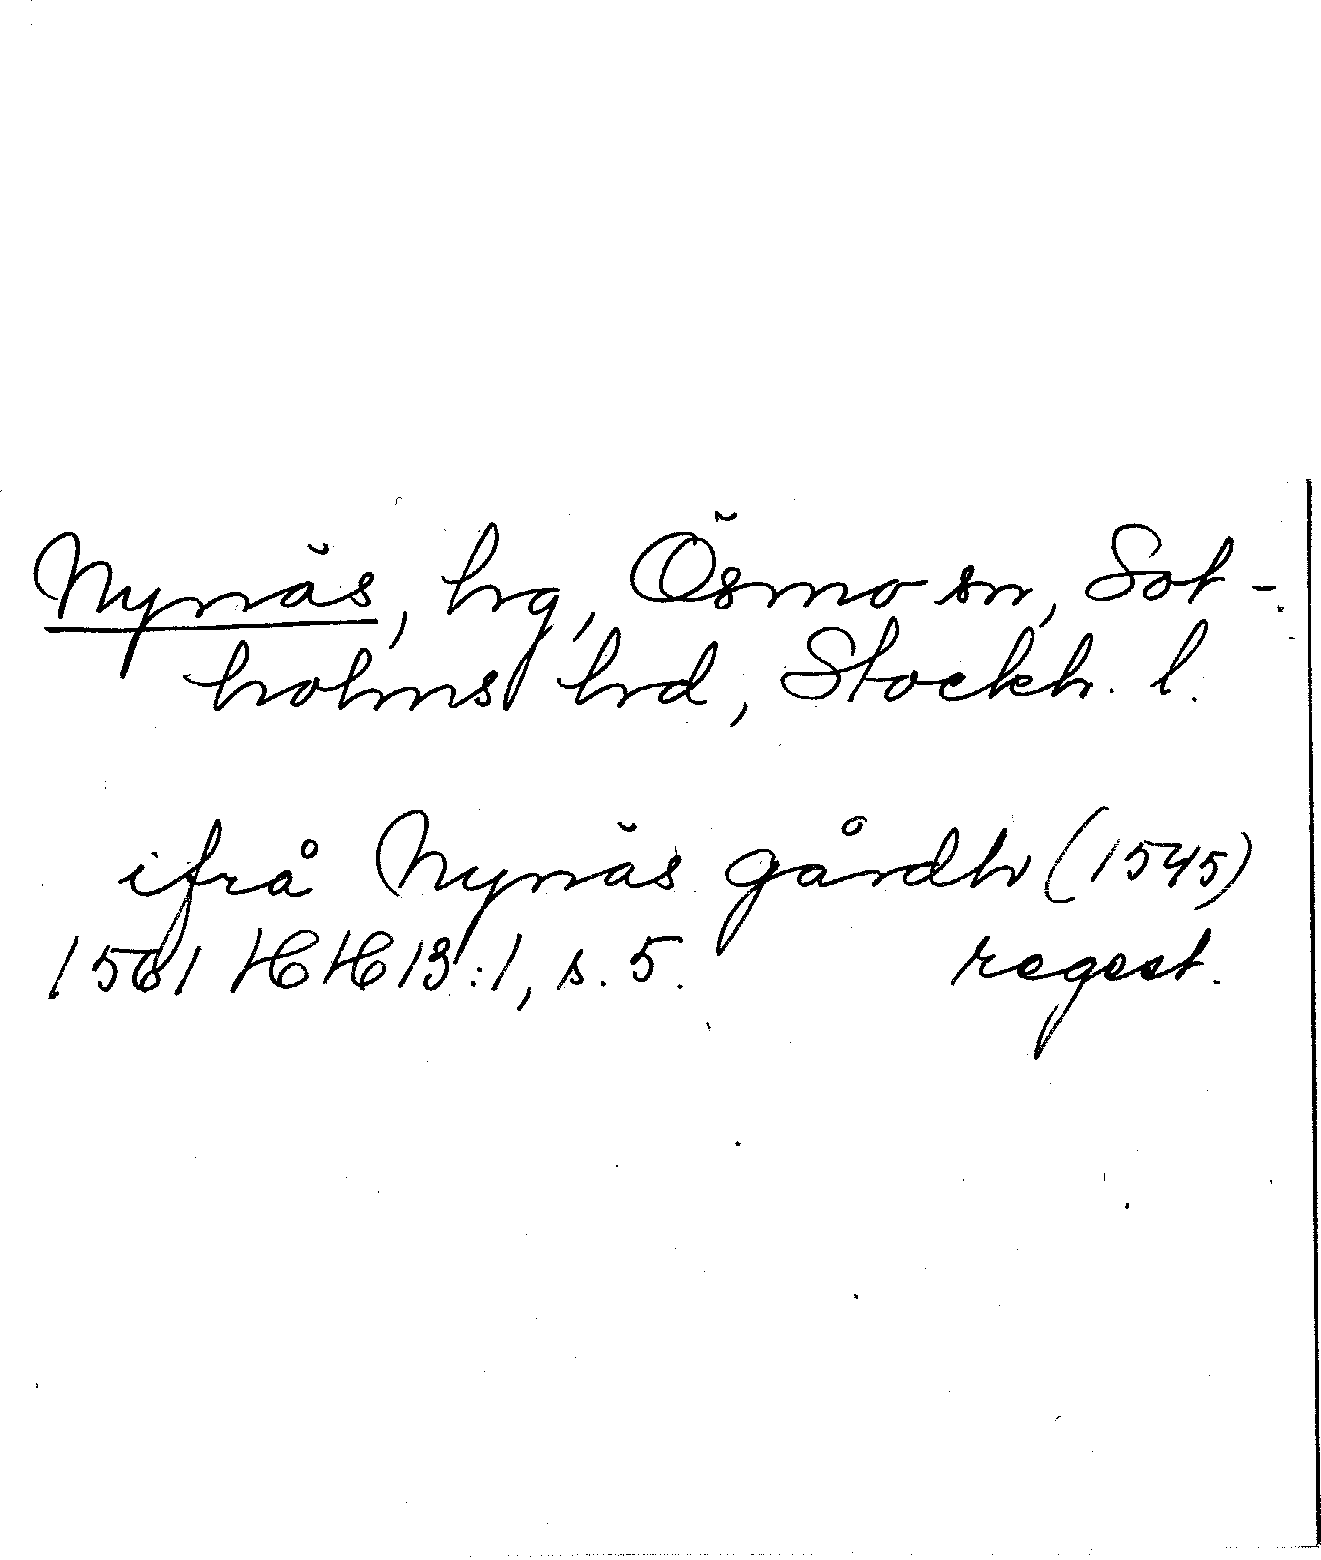 Nynäs, hg, Ösmo sn, Sot-
holms hd, Stockh. l.
ifrå Nynäs gårdh (1545)
1561 HH 13:1, s. 5. regest.